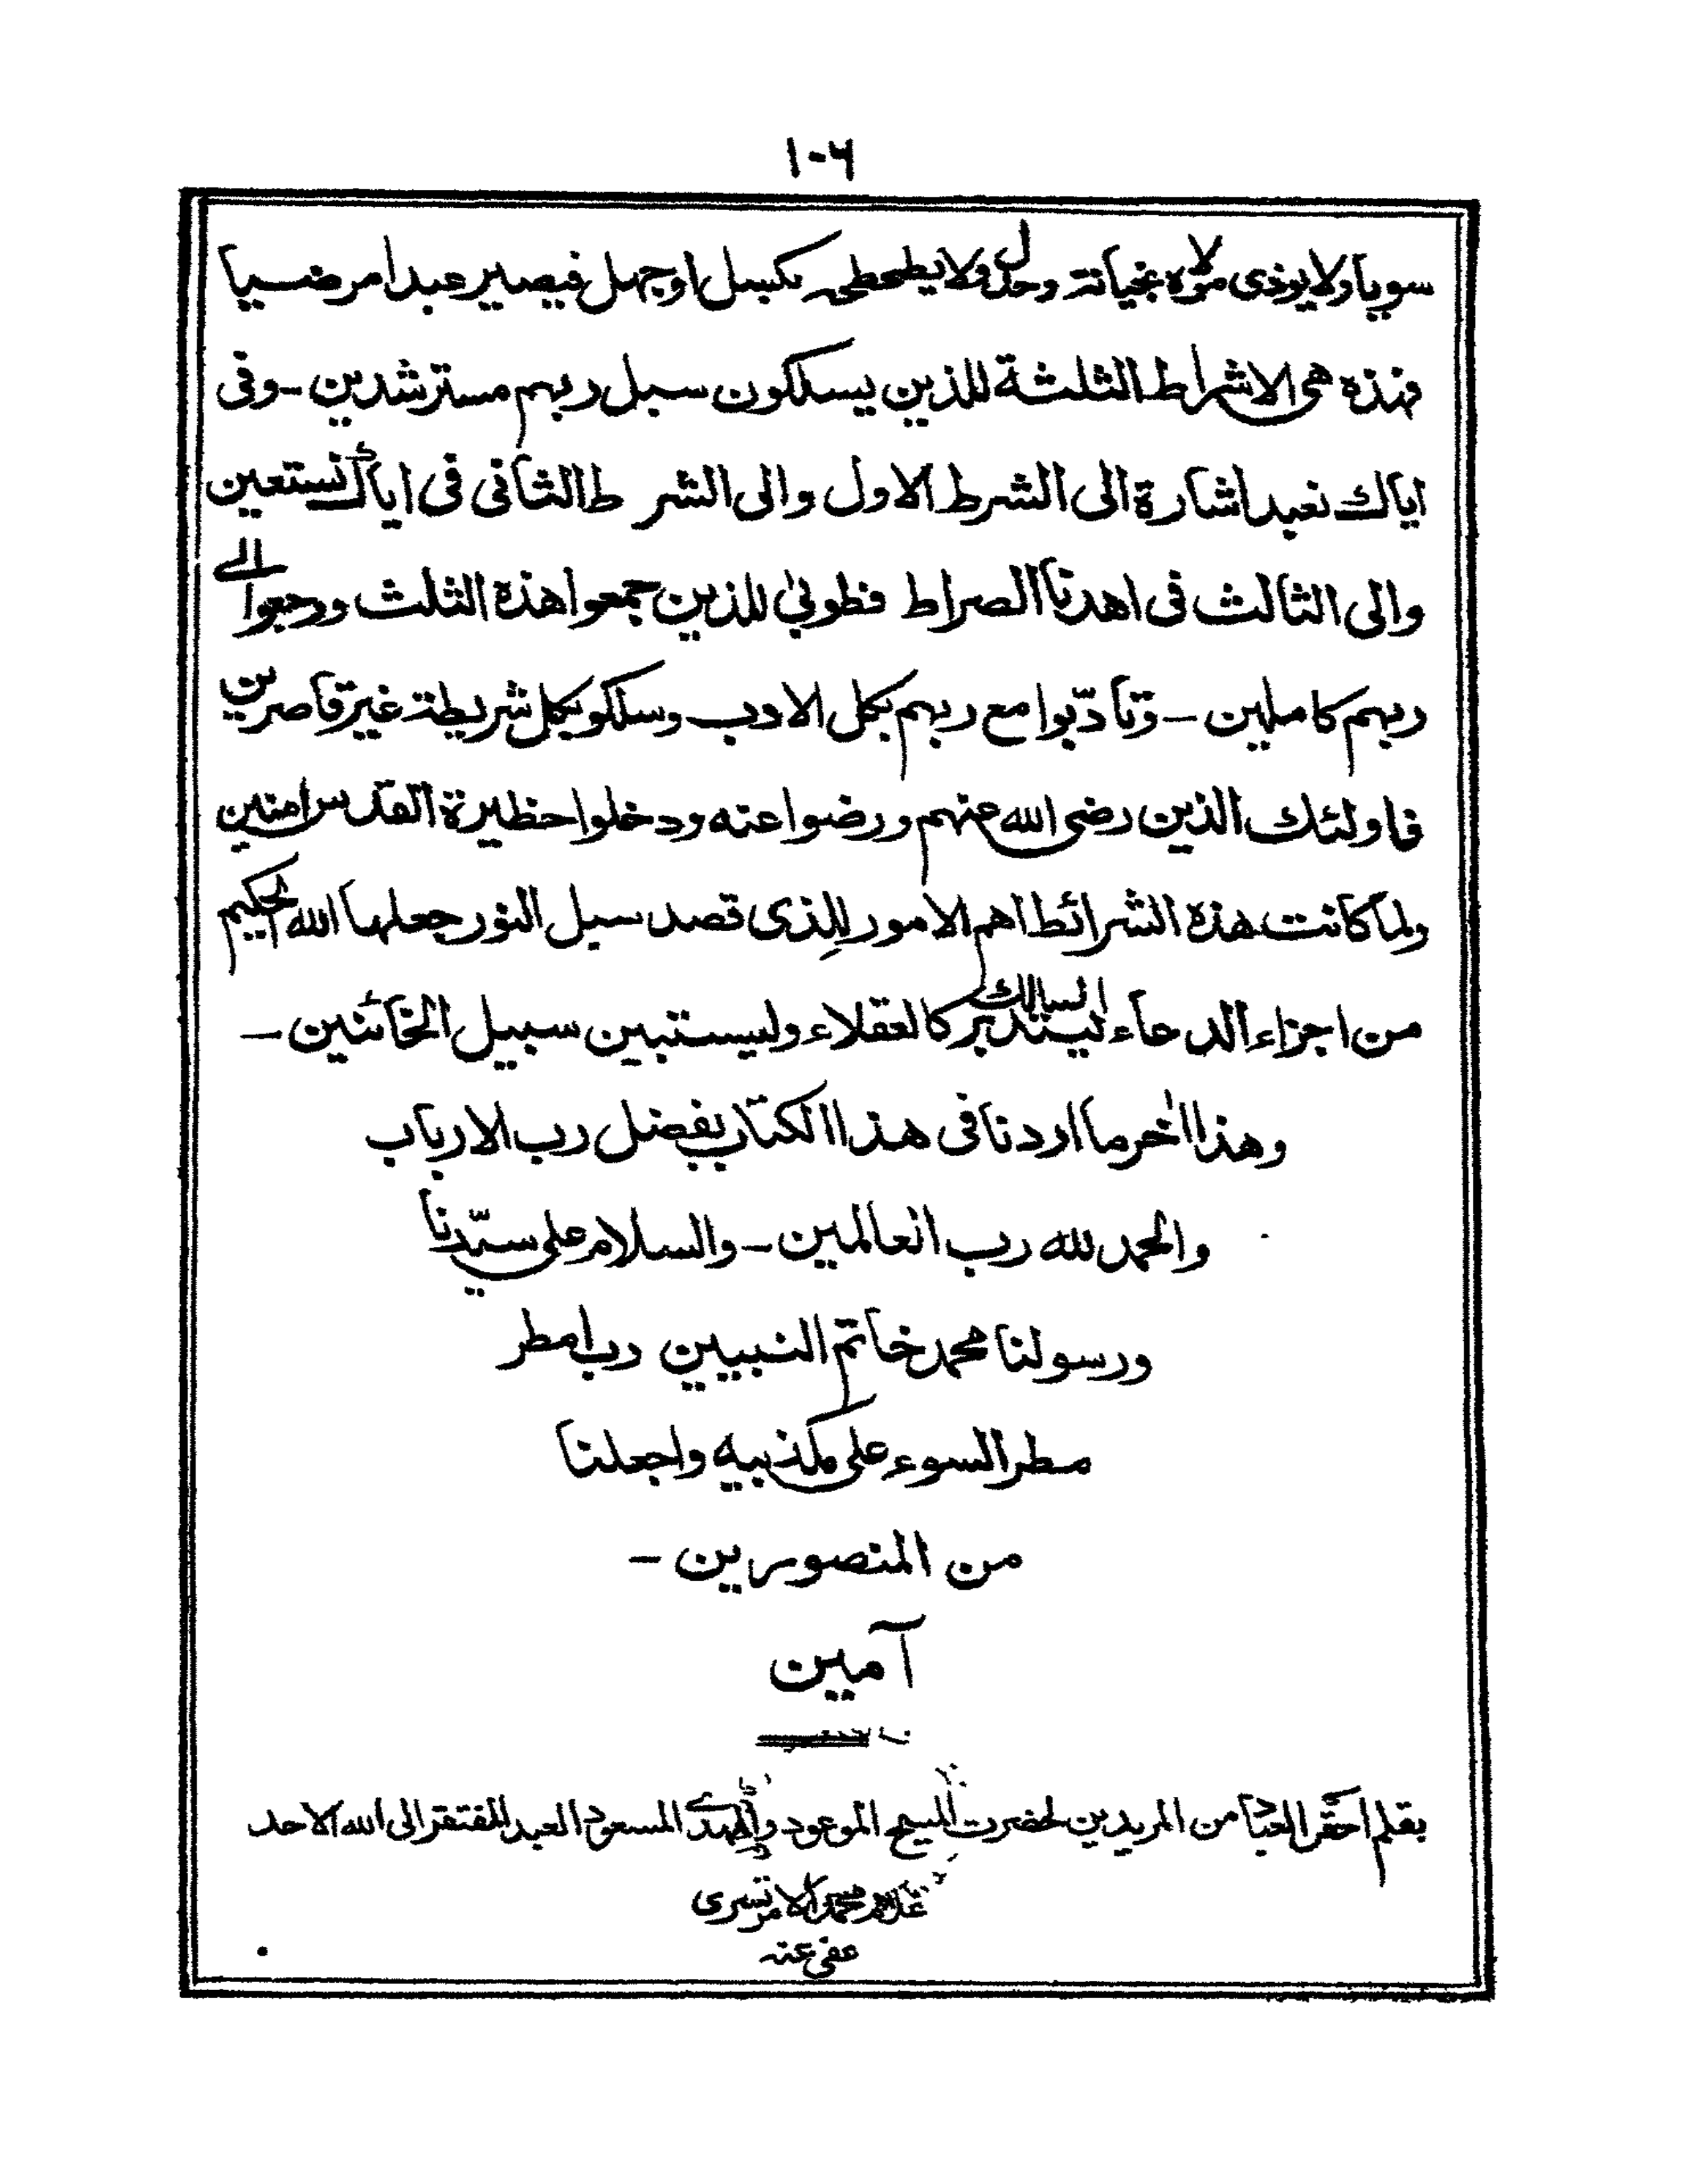 ١٠٦
سويا ولا يوذى مولاه بخيانة وحدل ولا يطحطحه بكسل او جهل فيصير عبدا مرضيا
فهذه هى الاشراط الثلثة للذين يسلكون سبل ربهم مسترشدين - وفى
اياك نعبد اشارة الى الشرط الاول والى الشرط الثانى فى اياك نستعين
والى الثالث فى اهدنا الصراط فطوبىٰ للذين جمعوا هذه الثلث ورجعوا الى
ربهم كاملين - وتادّبوا مع ربهم بكل الادب وسلكو بكل شريطة غير قاصرين
فاولئك الذين رضى الله عنهم ورضوا عنه ودخلوا حظيرة القدس امنين
ولما كانت هذه الشرائط اهم الامور للذى قصد سبل النور جعلها الله الحكيم
من اجزاء الدعاء ليتدبر السالك كالعقلاء وليستبين سبيل الخائنين -
وهذا اٰخر ما اردنا فى هذا الكتاب بفضل رب الارباب
والحمد لله رب العالمين - والسلام على سيّدنا
ورسولنا محمد خاتم النبيين رب امطر
مطر السوء على مكذبيه واجعلنا
من المنصورين -
آمين
بقلم احقر العباد من المريدين لحضرت المسيح الموعود والمهدى المسعود العبد المفتقر الى الله الاحد
غلام محمد الامرتسرى
عفى عنه